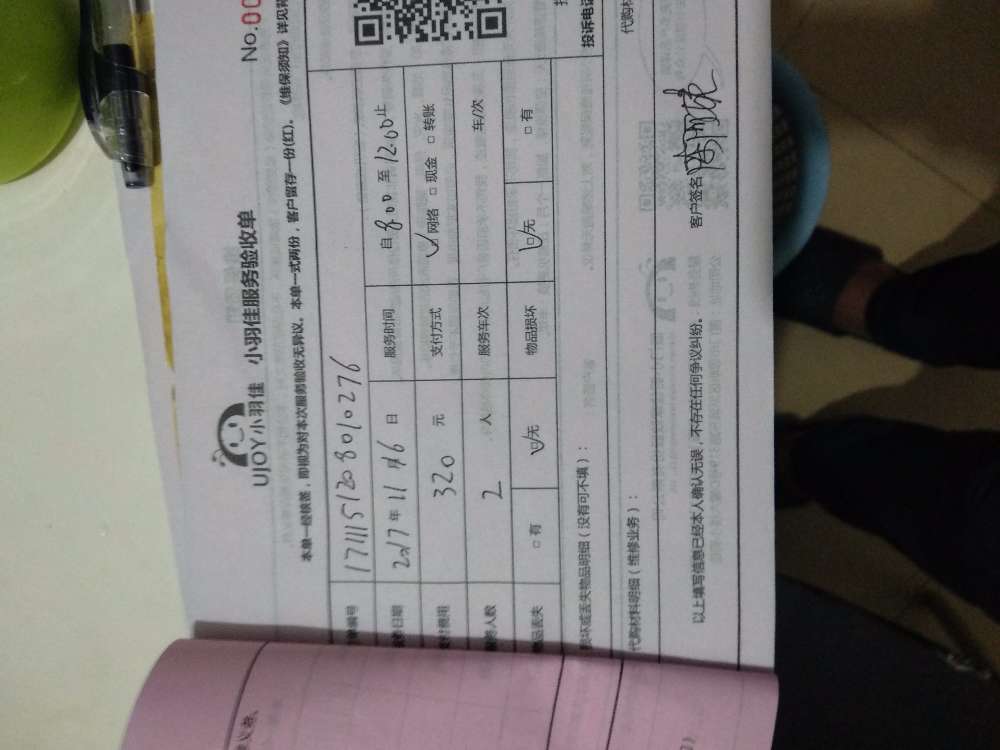 No.00
UJOY小羽佳 小羽佳服务验收单
本单一经核签，即视为对本次服务验收无异议。本单一式两份，客户留存一份(红)。《维保须知》详见背
单编号 1711151208010276
日期 2017年11月16日 服务时间 自800至1200止
费用 320元 支付方式 ☑网络 □现金 □转账
人数 2人 服务车次 车/次
品丢失 □有 ☑无 物品损坏 ☑无 □有
坏或丢失物品明细（没有可不填）： 投诉电话
代购材料明细（维修业务）： 代购材
以上填写信息已经本人确认无误，不存在任何争议纠纷。 客户签名